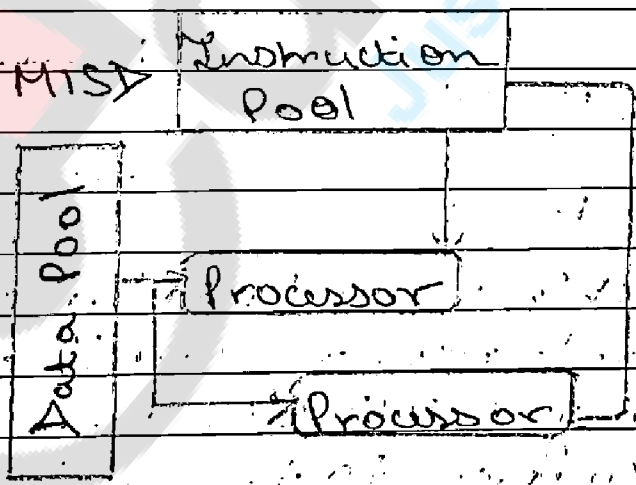 MISD
Instruction
Pool
Data Pool
Processor
Processor